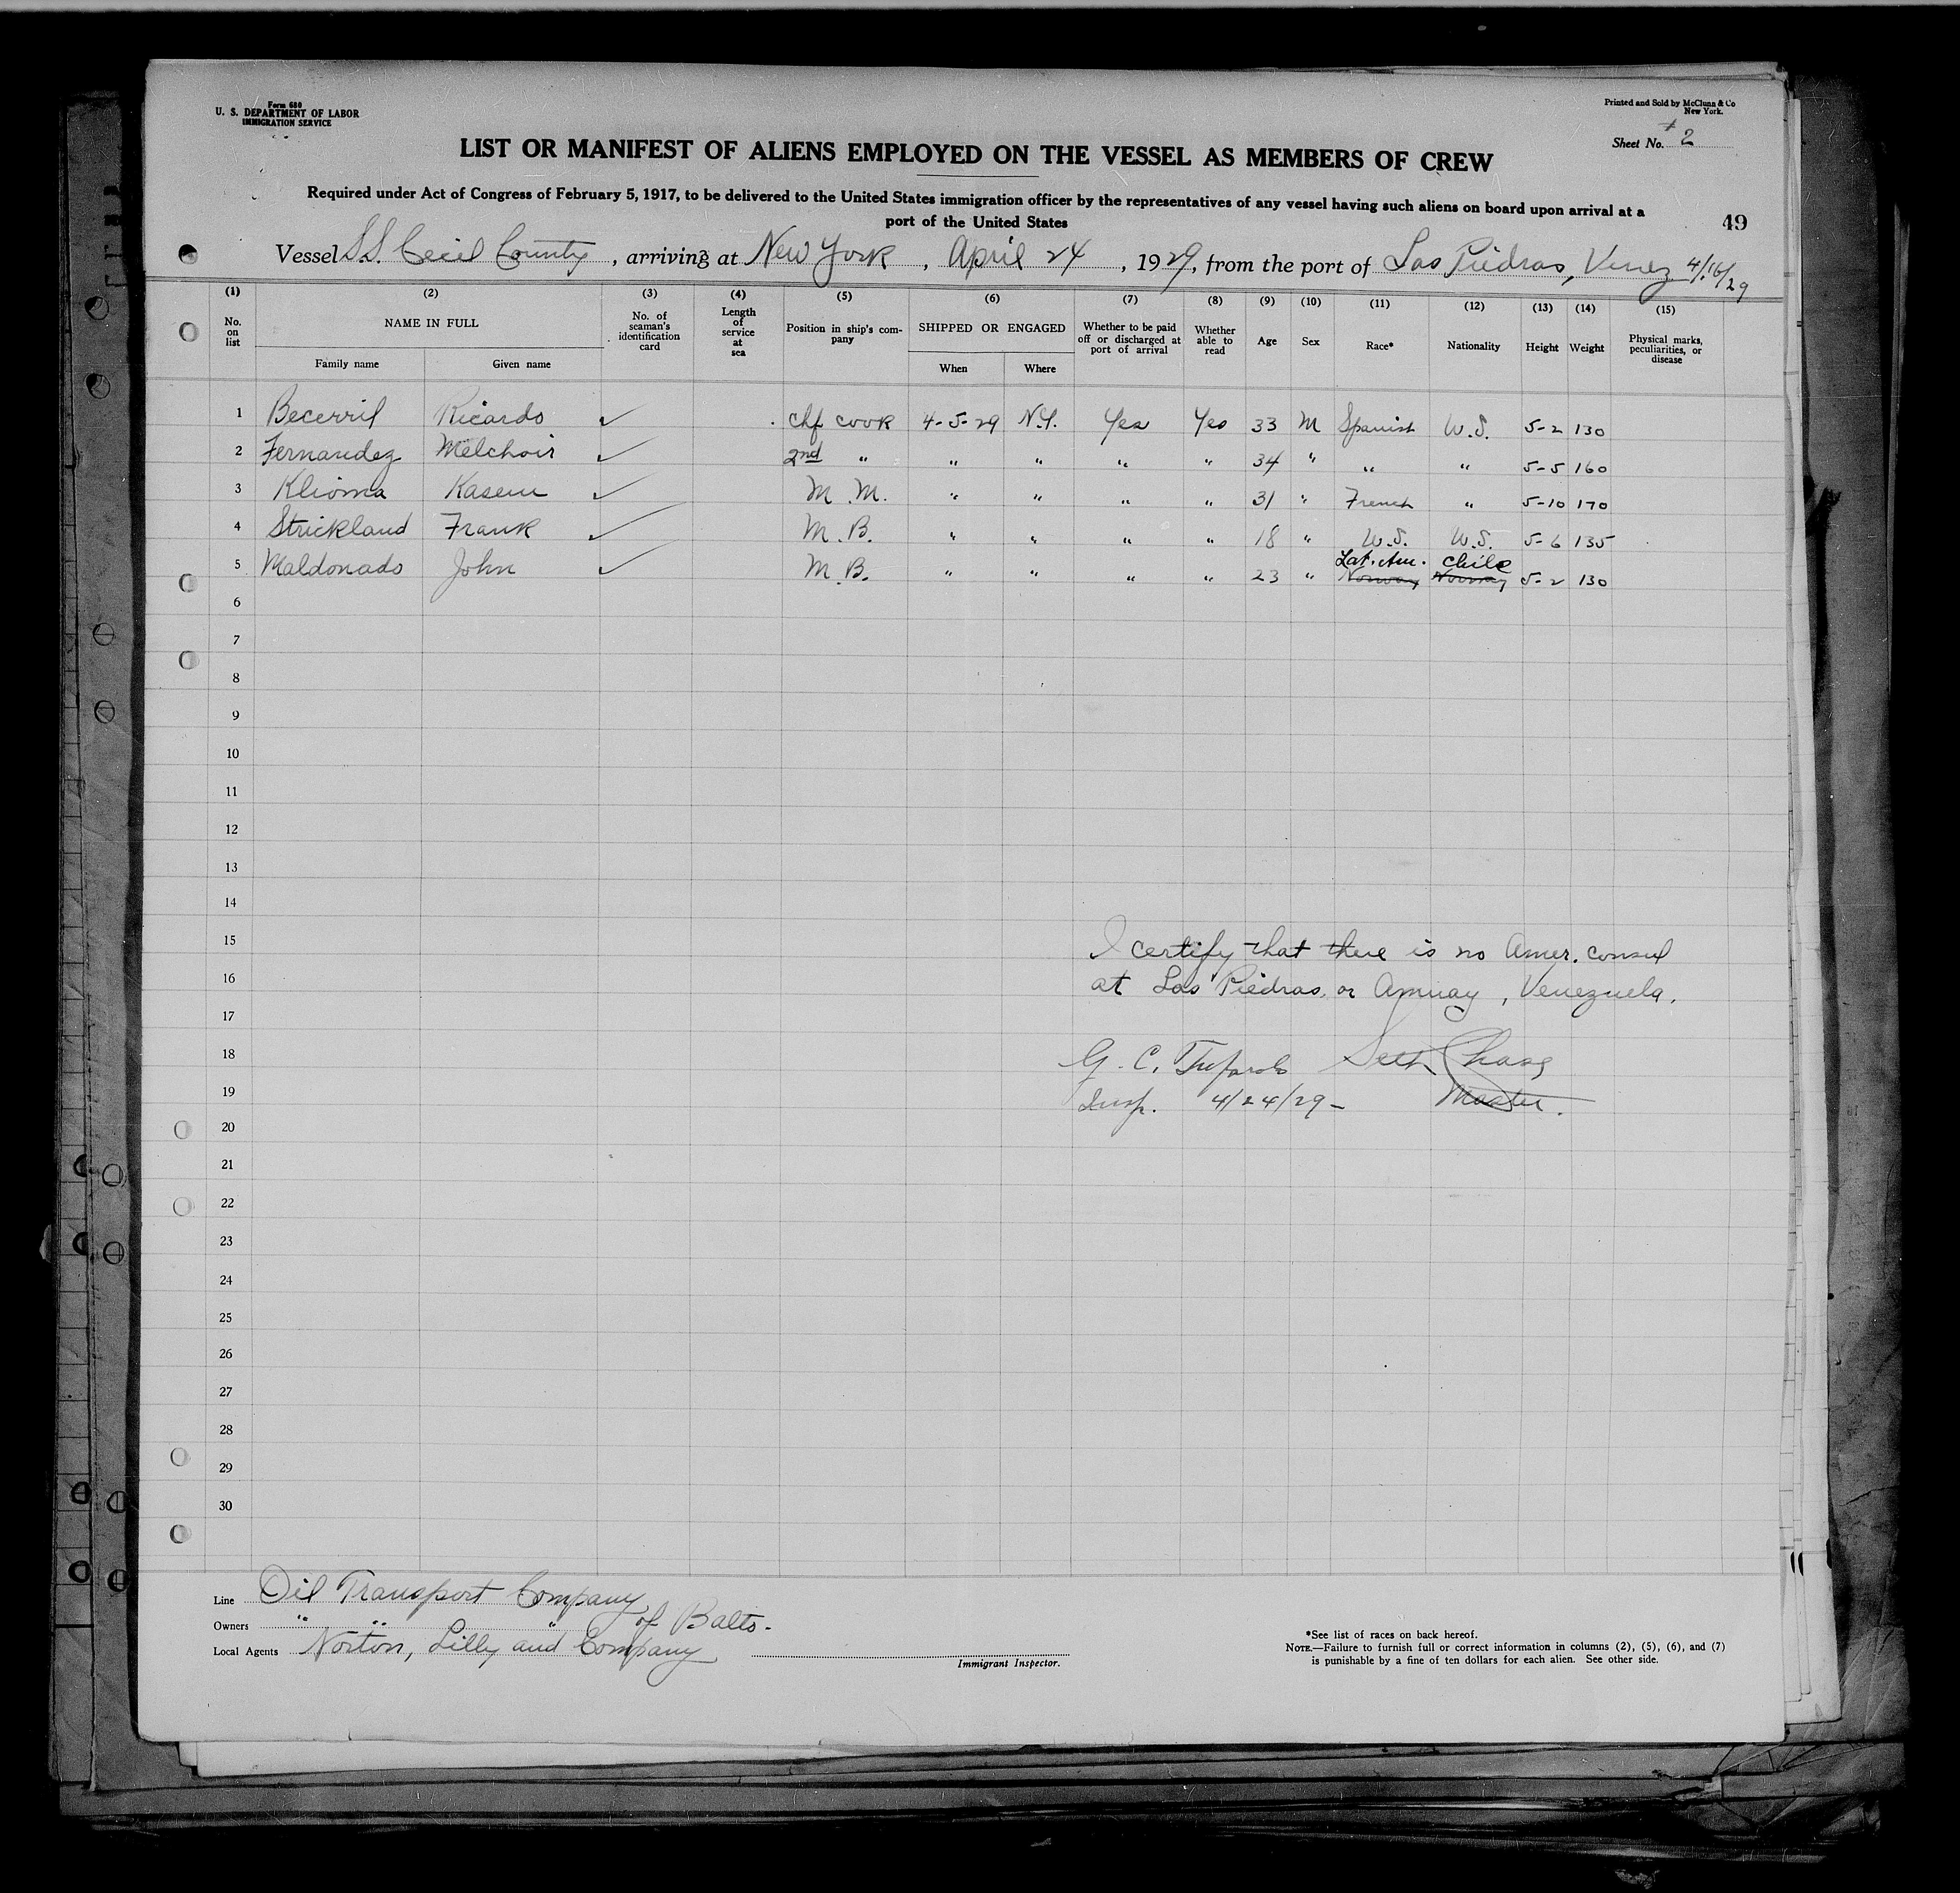 Form 680
U. S. DEPARTMENT OF LABOR
IMMIGRATION SERVICE
Printed and Sold by McClunn & Co
New York.
Sheet No. 2
LIST OR MANIFEST OF ALIENS EMPLOYED ON THE VESSEL AS MEMBERS OF CREW
Required under Act of Congress of February 5, 1917, to be delivered to the United States immigration officer by the representatives of any vessel having such aliens on board upon arrival at a
port of the United States
49
Vessel S.S. Cecil County, arriving at New York, April 24, 1929, from the port of Las Piedras, Venez 4/16/29
(1) (2) (3) (4) (5) (6) (7) (8) (9) (10) (11) (12) (13) (14) (15)
No. on list
NAME IN FULL
Family name Given name
No. of seaman's identification card
Length of service at sea
Position in ship's company
SHIPPED OR ENGAGED
When Where
Whether to be paid off or discharged at port of arrival
Whether able to read
Age
Sex
Race*
Nationality
Height
Weight
Physical marks, peculiarities, or disease
1 Becerril Ricardo ✓ chf cook 4-5-29 N.Y. Yes Yes 33 M Spanish U.S. 5-2 130
2 Fernandez Melchoir ✓ 2nd " " " " " 34 " " " 5-5 160
3 Klioma Kasem ✓ M.M. " " " " 31 " French " 5-10 170
4 Strickland Frank ✓ M.B. " " " " 18 " U.S. U.S. 5-6 135
5 Maldonado John ✓ M.B. " " " " 23 " Lat. Am. Chile Norway Norway 5-2 130
6
7
8
9
10
11
12
13
14
15
16
17
18
19
20
21
22
23
24
25
26
27
28
29
30
I certify that there is no Amer. consul
at Las Piedras or Amuay, Venezuela.
G. C. Seth Chase
Insp. 4/24/29 - Master.
Line Oil Transport Company
Owners " " " of Balto.
Local Agents Norton, Lilly and Company
Immigrant Inspector.
*See list of races on back hereof.
NOTE.—Failure to furnish full or correct information in columns (2), (5), (6), and (7)
is punishable by a fine of ten dollars for each alien. See other side.